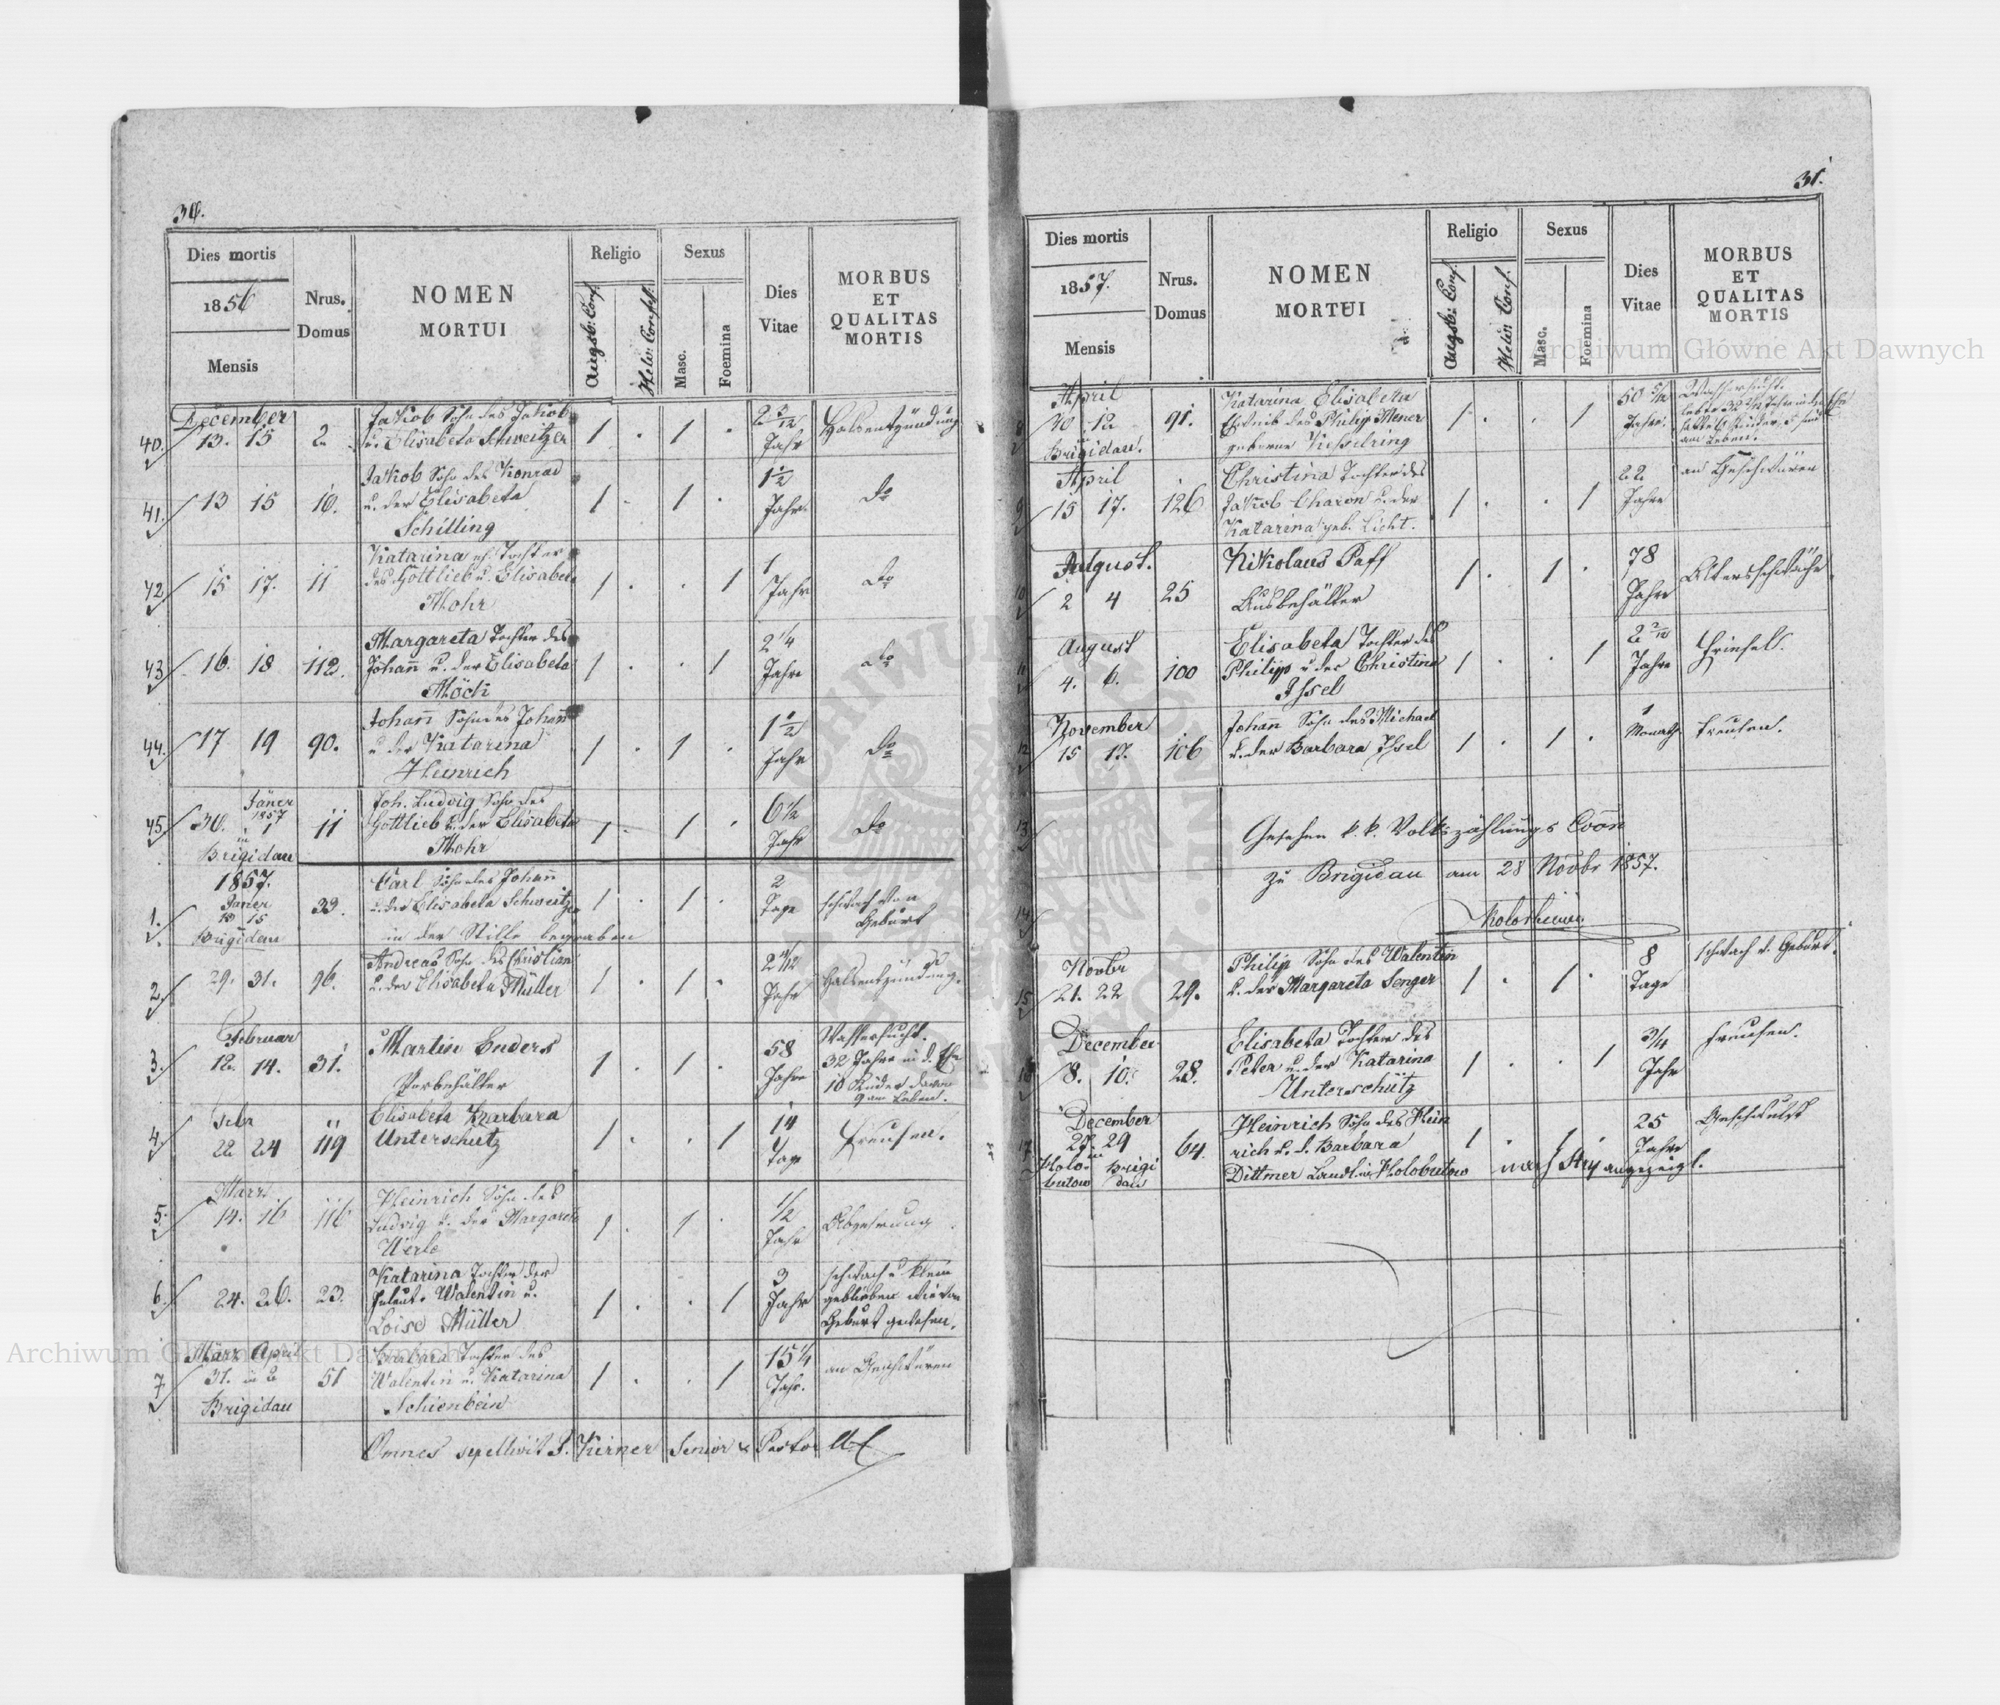 30.
Dies mortis
1856
Mensis
Nrus. Domus
NOMEN MORTUI
Religio
Augsb: Conf.
Helv: Confess.
Sexus
Masc.
Foemina
Dies Vitae
MORBUS ET QUALITAS MORTIS
December
40. 13. 15 2. Jakob Sohn des Jakob 1 . 1 . 2 3/12 Halsentzündung
u. Elisabeta Schweitzer Jahr
41. 13 15 10. Jakob Sohn des Konrad 1 . 1 . 1 1/2 do
u. der Elisabeta Jahr
Schilling
42. 15 17. 11 Katarina eh. Tochter 1 . . 1 1 do
des Gottlieb u. Elisabeta Jahr
Mohr
43. 16. 18 112. Margareta Tochter des 1 . . 1 2 1/4 do
Johann u. der Elisabeta Jahre
Möck
44. 17 19 90. Johann Sohn des Johann 1 . 1 . 1 1/2 do
u. der Katarina Jahr
Heinrich
45. 30. Jäner 1857 1 11 Joh. Ludvig Sohn des 1 . 1 . 6 1/2 do
in Gottlieb u. der Elisabeta Jahr
Brigidau Mohr
1857.
Janer
1. 13 15 33. Carl Sohn des Johann 1 . 1 . 2 Tage schwach von
Brigidau u. der Elisabeta Schweitzer Geburt
in der Stille begraben
2. 29. 31. 96. Andreas Sohn des Christian 1 . 1 . 2 11/12 Halsentzündung.
u. der Elisabeta Müller Jahr
Februar
3. 12. 14. 31. Martin Enders 1 . 1 . 58 Wassersucht.
Vorbehälter Jahre 32 Jahre in d. Ehe
10 Kinder davon
9 am Leben.
Febr
4. 22 24 119 Elisabeta Barbara 1 . . 1 14 Freusen.
Unterschutz Tage
Marz
5. 14. 16 116 Heinrich Sohn des 1 . 1 . 1/2 Abzehrung
Ludvig u. der Margareta Jahr
Werle
6. 24. 26. 23. Katarina Tochter der 1 . . 1 3 schwach u. klein
Valentin u. Jahr geblieben wie von
Loise Müller Geburt gewesen.
März April
7 31. in 2 51 Barbara Tochter des 1 . . 1 15 1/4 an Geschwüren
Brigidau Walentin u. Katarina Jahr.
Schienbein
Omnes sepellivit J. Kirner Senior & Pastor
31.
Dies mortis
1857.
Mensis
Nrus. Domus
NOMEN MORTUI
Religio
Augsb: Conf.
Helv: Conf.
Sexus
Masc.
Foemina
Dies Vitae
MORBUS ET QUALITAS MORTIS
April
8 10 12 91. Katarina Elisabeta 1 . . 1 50 5/12 Wassersucht.
in Eheweib des Philip Mener Jahre. lebte 32 Jahr in der Ehe
Brigidau. geborne Kesselring hatte Kinder, 5 sind
am Leben.
April
9 15 17. 126 Christina Tochter des 1 . . 1 22 an Geschwüren
Jakob Charon u. der Jahre
Katarina geb. Licht.
August.
10 2 4 25 Nikolaus Paff 1 . 1 . 78 Altersschwäche
Ausbehälter Jahre
August
11 4. 6. 100 Elisabeta Tochter des 1 . . 1 2 2/12 Friesel.
Philipp u. der Christina Jahre
Issel
November
12 15 17. 106 Johann Sohn des Michael 1 . 1 . 1 Freusen.
u. der Barbara Issel Monath
13 Gesehen k. k. Volkszählungs Coon
zu Brigidau am 28 Novbr 1857.
14
Novbr
15 21. 22 29. Philip Sohn des Walentin 1 . 1 . 8 schwach v. Geburt.
u. der Margareta Senger Tage
December
16 8. 10. 28. Elisabeta Tochter des 1 . . 1 3/4 Freusen.
Peter u. der Katarina Jahr
Unterschütz
December
17 27. 29 64. Heinrich Sohn des Hein 1 . 1 . 25 Geschwulst
Holo- in Brigi rich u. d. Barbara Jahre
butow dau Dittmer Landl. in Holobutow nach Stry angezeigt.
Archiwum Główne Akt Dawnych
Archiwum Główne Akt Dawnych
ARCHIWUM GŁÓWNE AKT DAWNYCH